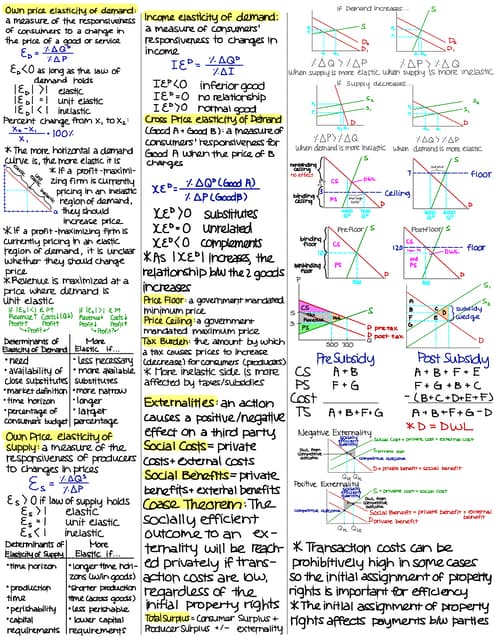 Own price elasticity of demand:
a measure of the responsiveness
of consumers to a change in
the price of a good or service
ε_D = %ΔQ^D / %ΔP
ε_D<0 as long as the law of
demand holds
|ε_D| >1 elastic
|ε_D| =1 unit elastic
|ε_D| <1 inelastic
Percent change from x₁ to x₂:
x₂-x₁ / x₁ · 100%
* The more horizontal a demand
curve is, the more elastic it is
* If a profit-maximi-
zing firm is currently
pricing in an inelastic
region of demand,
they should
increase price.
* If a profit-maximizing firm is
currently pricing in an elastic
region of demand, it is unclear
whether they should change
price
* Revenue is maximized at a
price where demand is
unit elastic
Determinants of Elasticity of Demand
More Elastic if...
• need • less necessary
• availability of close substitutes • more available substitutes
• market definition • more narrow
• time horizon • longer
• percentage of consumers budget • larger percentage
Own Price elasticity of
supply: a measure of the
responsiveness of producers
to changes in prices
ε_s = %ΔQ^s / %ΔP
ε_s >0 if law of supply holds
ε_s >1 elastic
ε_s =1 unit elastic
ε_s <1 inelastic
Determinants of Elasticity of Supply
More Elastic if...
• time horizon • longer time hori-
zons (w/in goods)
• production time • shorter production
time (across goods)
• perishability • less perishable
• capital requirements • lower capital requirements
Income elasticity of demand:
a measure of consumers'
responsiveness to changes in
income
IE^D = %ΔQ^D / %ΔI
IE^D <0 inferior good
IE^D =0 no relationship
IE^D >0 normal good
Cross Price elasticity of Demand
(Good A + Good B): a measure of
consumers' responsiveness for
Good A when the price of B
changes
XE^D = %ΔQ^D (Good A) / %ΔP (Good B)
XE^D >0 substitutes
XE^D =0 unrelated
XE^D <0 complements
* As |XE^D| increases, the
relationship b/w the 2 goods
increases
Price Floor: a government mandated
minimum price
Price Ceiling: a government
mandated maximum price
Tax Burden: the amount by which
a tax causes prices to increase
(decrease) for consumers (producers)
* More inelastic side is more
affected by taxes/subsidies
Externalities: an action
causes a positive/negative
effect on a third party
Social Costs = private
costs + external costs
Social Benefits = private
benefits + external benefits
Coase Theorem: The
socially efficient
outcome to an ex-
ternality will be reach-
ed privately if trans-
action costs are low,
regardless of the
initial property rights
Total Surplus = Consumer Surplus +
Producer Surplus +/- externality
If Demand Increases...
%ΔQ > %ΔP
when supply is more elastic
%ΔP > %ΔQ
when supply is more inelastic
If Supply decreases
%ΔP > %ΔQ
when demand is more inelastic
%ΔQ > %ΔP
when demand is more elastic
nonbinding ceiling
no effect
binding ceiling
CS
DWL
PS
ceiling
floor
Pre Floor
binding floor
nonbinding floor
CS
PS
Post Floor
120
floor
DWL
CS
PS
D pre tax
D post tax
500 700
A
B
F
G
subsidy wedge
Pre Subsidy Post Subsidy
CS A+B A+B+F+E
PS F+G F+G+B+C
Cost -(B+C+D+E+F)
TS A+B+F+G A+B+F+G-D
* D = DWL
Negative Externality
S social cost = private cost + external cost
S private cost
D = private benefit = social benefit
Positive Externality
S = private cost = social cost
Social Benefit = private benefit + external benefit
D private benefit
* Transaction costs can be
prohibitively high in some cases
so the initial assignment of property
rights is important for efficiency
* The initial assignment of property
rights affects payments b/w parties